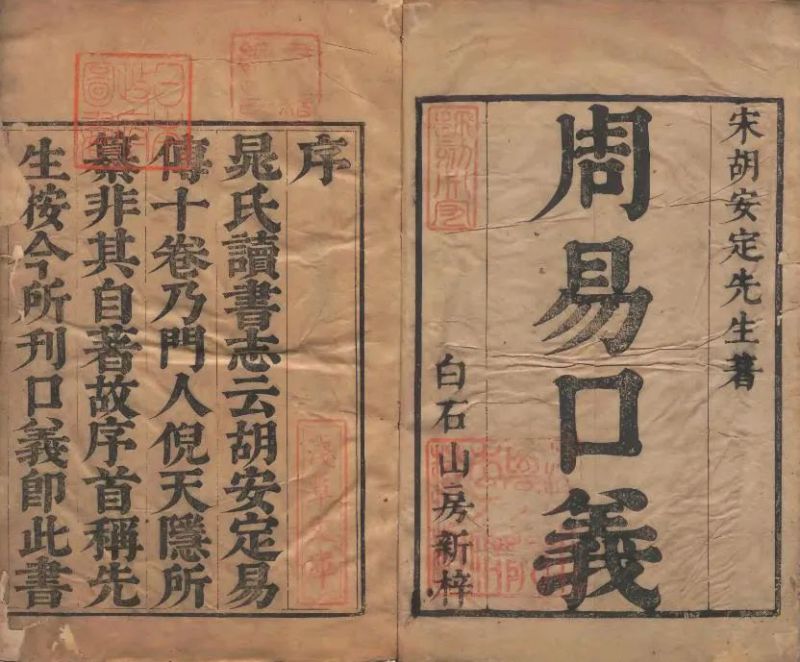 宋胡安定先生著
周易口義
白石山房新梓
序
晁氏讀書志云胡安定易
傳十卷乃門人倪天隱所
纂非其自著故序首稱先
生按今所刊口義即此書